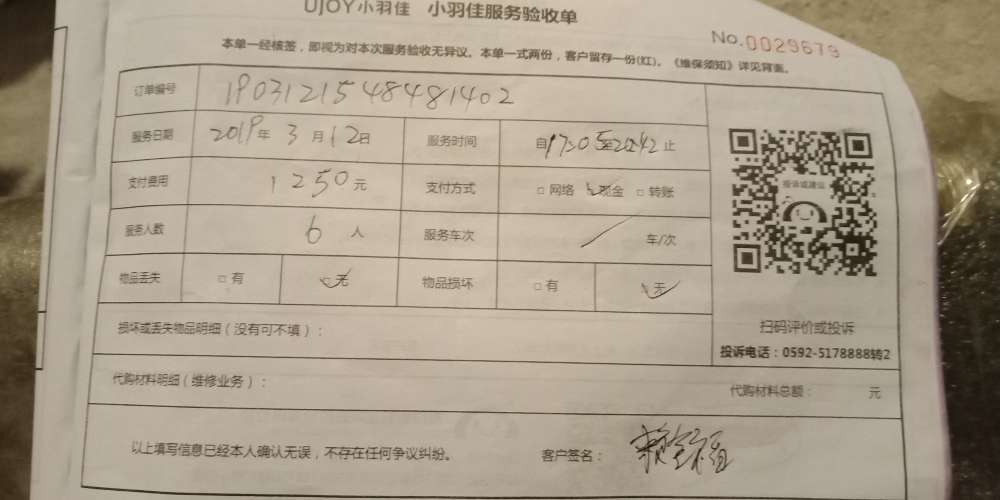 UJOY小羽佳 小羽佳服务验收单
No.0029679
本单一经核签，即视为对本次服务验收无异议。本单一式两份，客户留存一份(红)。《维保须知》详见背面。
订单编号 1903121548481402
服务日期 2019年3月12日 服务时间 自17:05至20:42止
支付费用 1250元 支付方式 □网络 □现金 □转账
服务人数 6人 服务车次 / 车/次
物品丢失 □有 □无 物品损坏 □有 □无
投诉或建议
扫码评价或投诉
投诉电话：0592-5178888转2
损坏或丢失物品明细（没有可不填）：
代购材料明细（维修业务）： 代购材料总额： 元
以上填写信息已经本人确认无误，不存在任何争议纠纷。 客户签名：